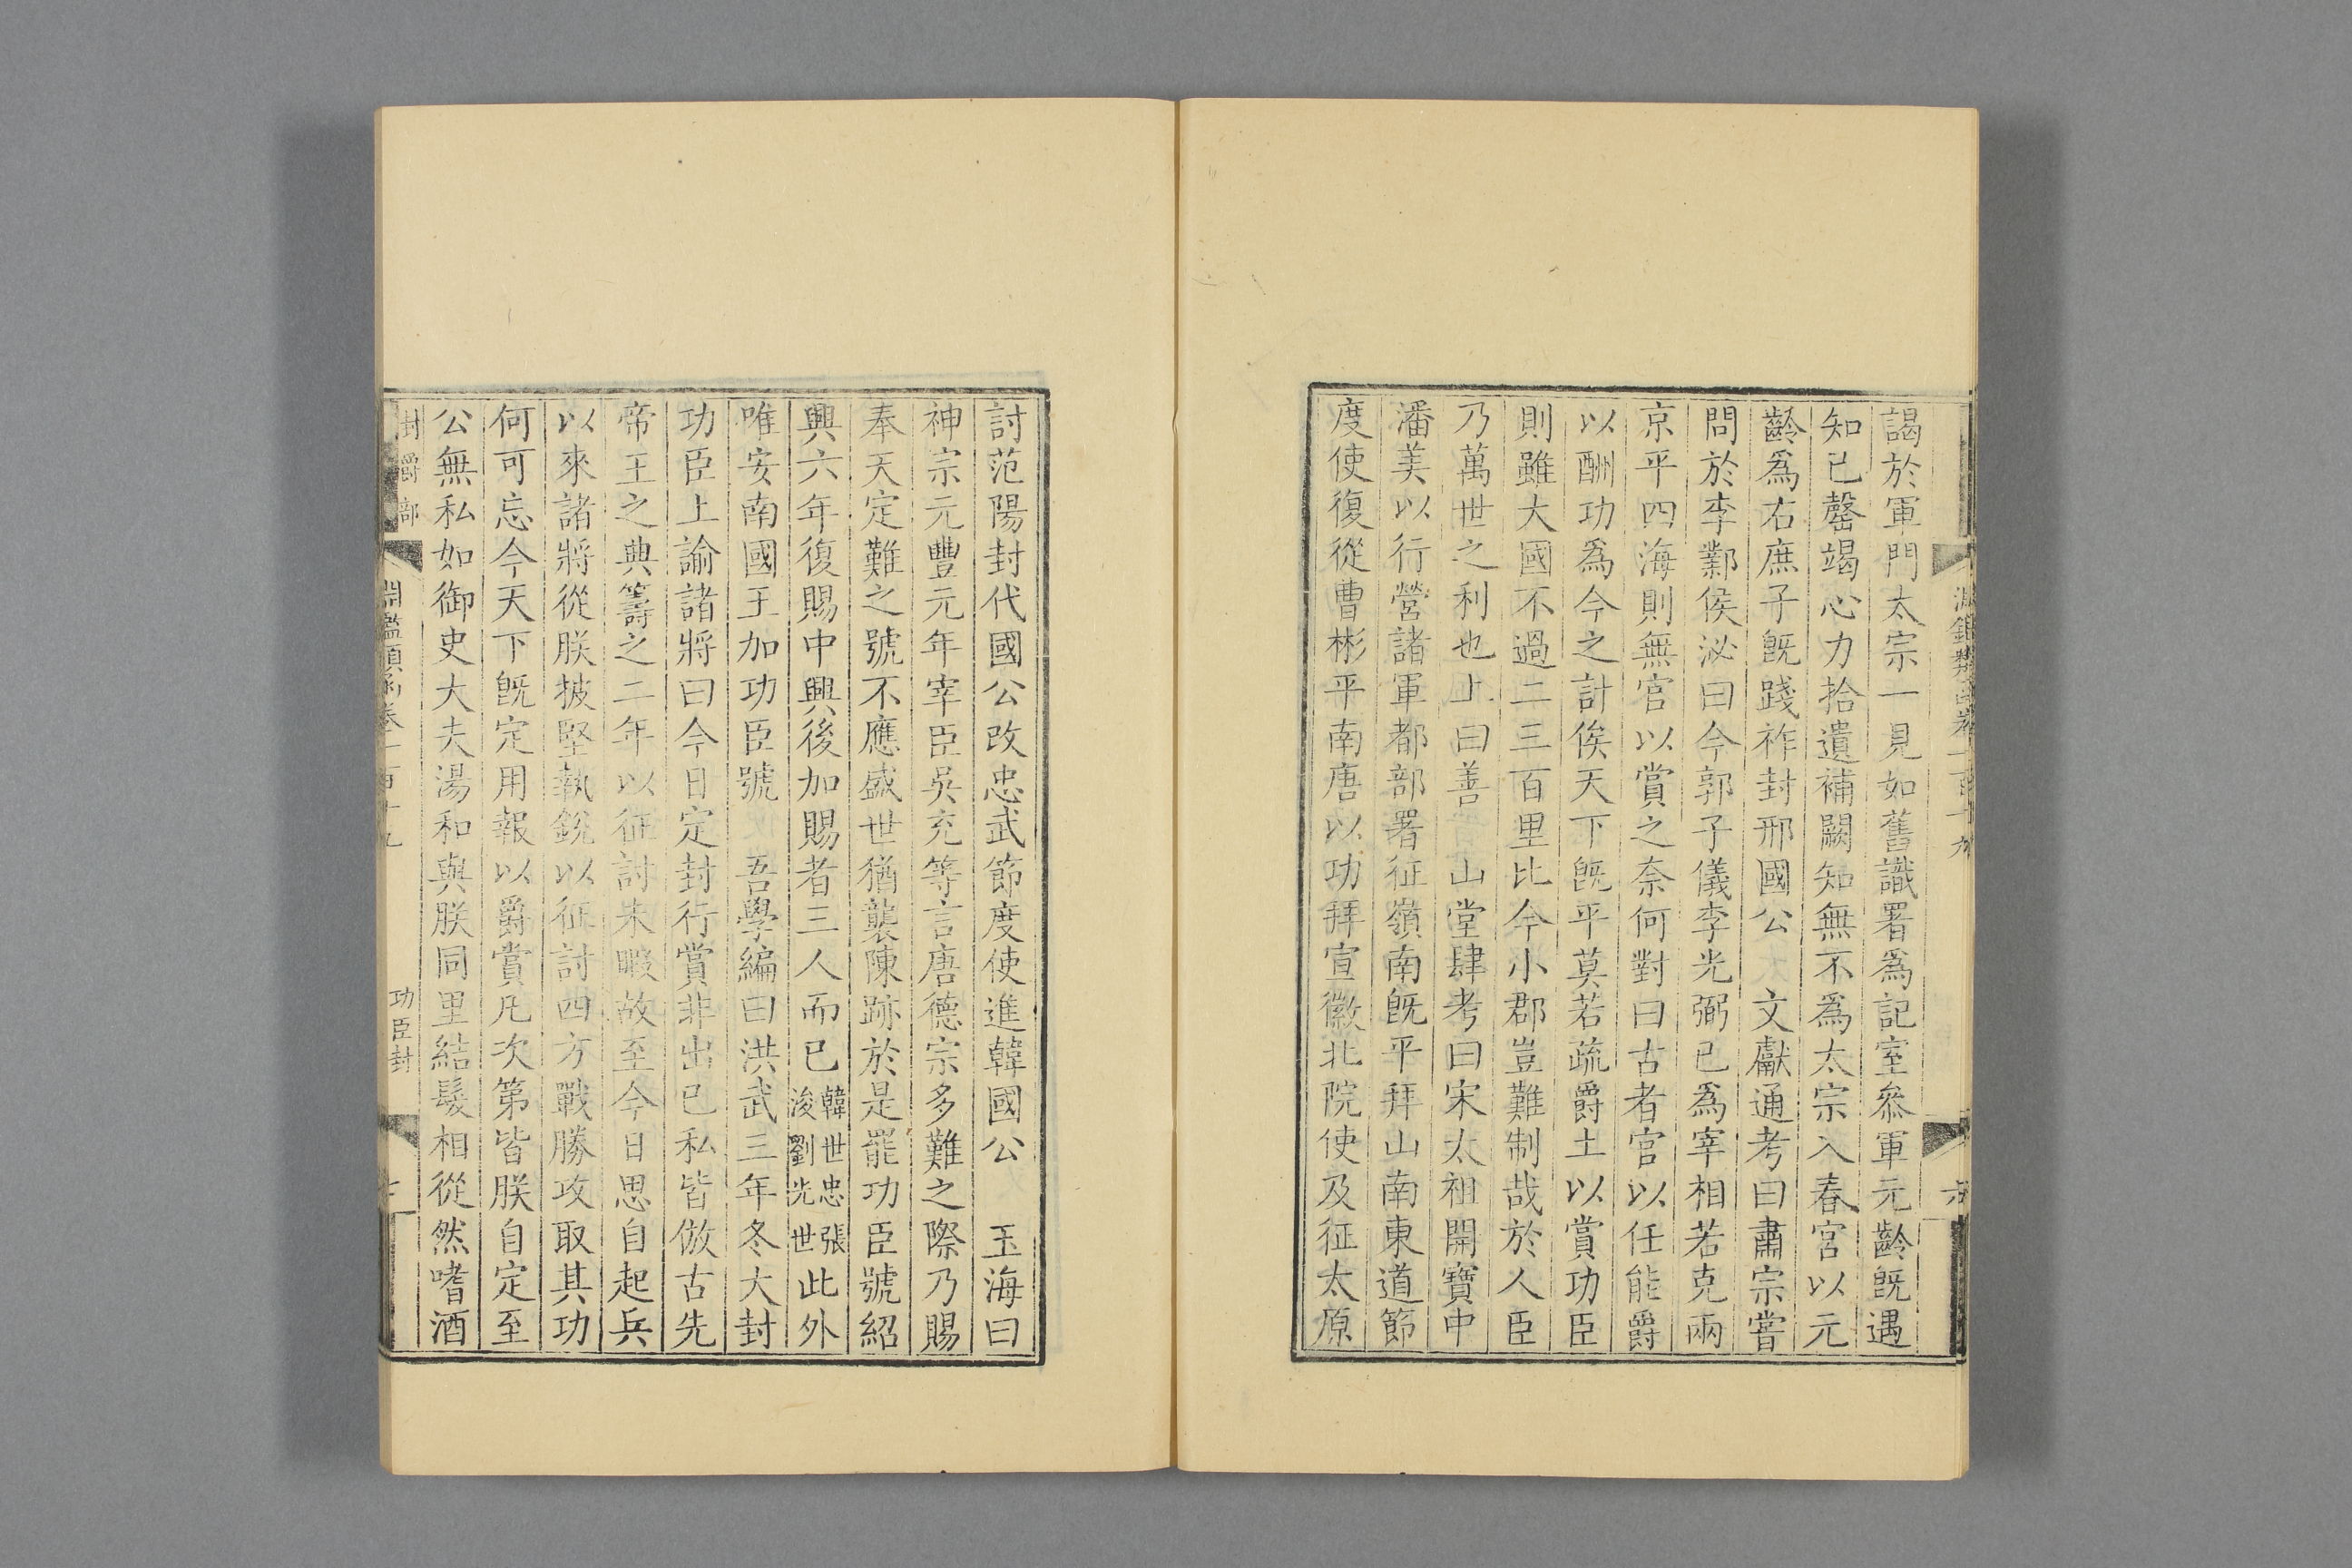 謁於軍門太宗一見如舊識署爲記室叅軍元齡旣遇
知已罄竭心力拾遺補闕知無不爲太宗入春宮以元
齡爲右庶子旣踐祚封邢國公 文獻通考曰肅宗嘗
問於李鄴侯泌曰今郭子儀李光弼已爲宰相若克兩
京平四海則無官以賞之奈何對曰古者官以任能爵
以酬功爲今之計俟天下旣平莫若疏爵土以賞功臣
則雖大國不過二三百里比今小郡豈難制哉於人臣
乃萬世之利也上曰善 山堂肆考曰宋太祖開寶中
潘美以行營諸軍都部署征嶺南旣平拜山南東道節
度使復從曹彬平南唐以功拜宣徽北院使及征太原
討范陽封代國公改忠武節度使進韓國公 玉海曰
神宗元豐元年宰臣吳充等言唐德宗多難之際乃賜
奉天定難之號不應盛世猶襲陳跡於是罷功臣號紹
興六年復賜中興後加賜者三人而已韓世忠張浚劉光世此外
唯安南國王加功臣號 吾學編曰洪武三年冬大封
功臣上諭諸將曰今日定封行賞非出已私皆倣古先
帝王之典籌之二年以征討未暇故至今日思自起兵
以來諸將從朕披堅執銳以征討四方戰勝攻取其功
何可忘今天下旣定用報以爵賞凡次第皆朕自定至
公無私如御史大夫湯和與朕同里結髮相從然嗜酒
封爵部 淵鑑類函卷一百十九 功臣封